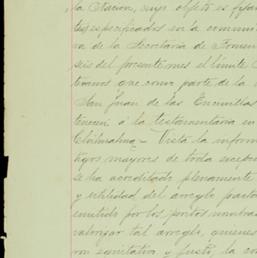 la Nación, cuyo objeto es fijar
tos especificados en la comuni
va de la Secretaría de Fomen
seis del presente mes el límite
tramos que como parte de la
San Juan de las Encinillas
tenecen á la testamentaria
Chihuahua.- Vista la inform
tigos mayores de toda excep
se ha acreditado plenamente
y utilidad del arreglo pract
emitido por los peritos nombra
valorizar tal arreglo, quienes
ron equitativo y justo, la co